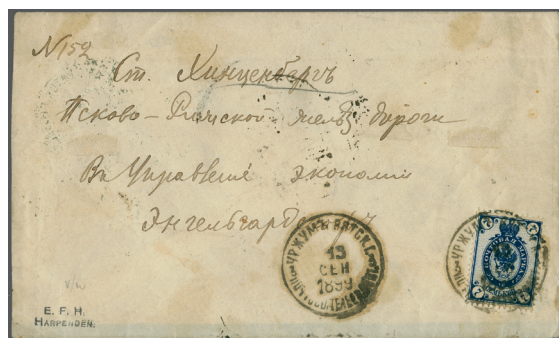 N152
Ст. Хинценбергъ
Псково-Рижской желѣз дороги
Въ Управленіе экономіи
Энгельгардсгофъ
УРЖУМЪ ВЯТСК. Г.
13
СЕН
1899
УРЖУМЪ
ПОЧТОВАЯ МАРКА
7
7
7
7
E. F. H.
HARPENDEN.